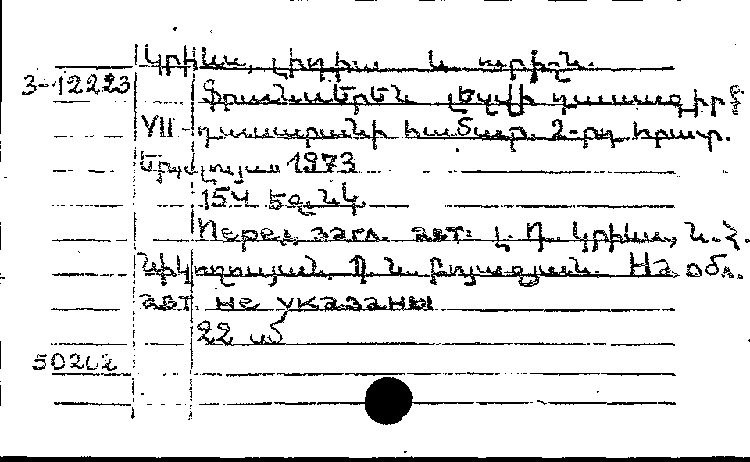 Կրիևա, Լիդիա և ուրիշն.
3-12223
Ֆրանսերեն լեզվի դասագիրք
VII-դասարանի համար. 2-րդ հրատ.
Երևան, Լույս 1973
154 էջ, նկ.
Перед загл. авт: Լ. Դ. Կրիևա, Ն. Հ.
Նիկողոսյան, Ռ. Ն. Բոյաջյան. На обл.
авт. не указаны
22 մ
50262